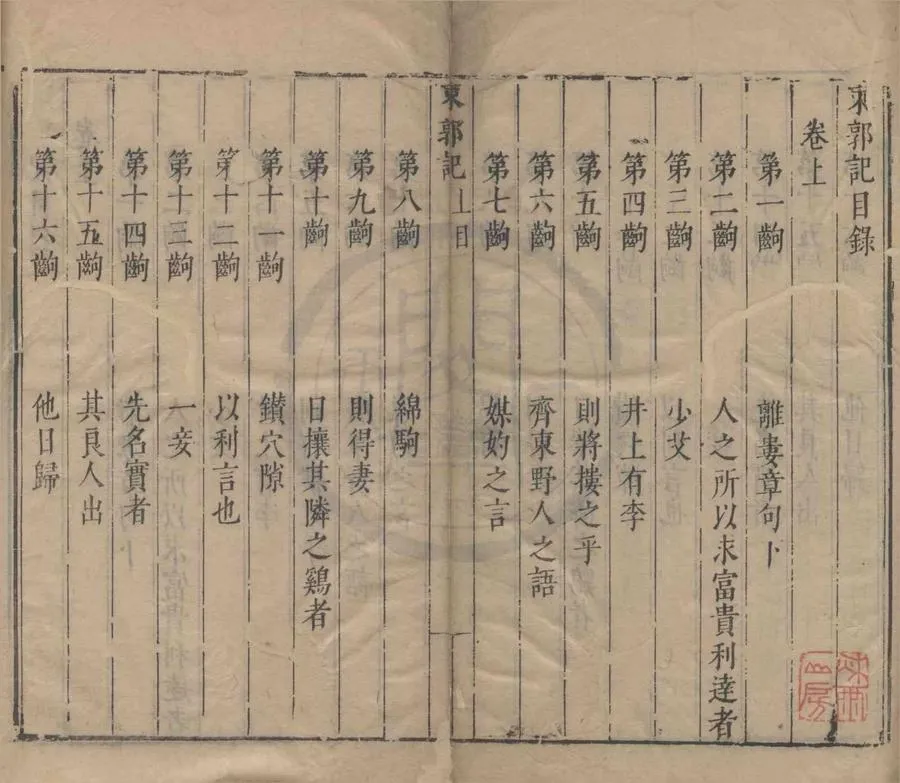 東郭記目錄
卷上
第一齣 離婁章句下
第二齣 人之所以求富貴利達者
第三齣 少艾
第四齣 井上有李
第五齣 則將摟之乎
第六齣 齊東野人之語
第七齣 媒妁之言
東郭記 上目
第八齣 綿駒
第九齣 則得妻
第十齣 日攘其隣之鷄者
第十一齣 鑚穴隙
第十二齣 以利言也
第十三齣 一妾
第十四齣 先名實者
第十五齣 其良人出
第十六齣 他日歸